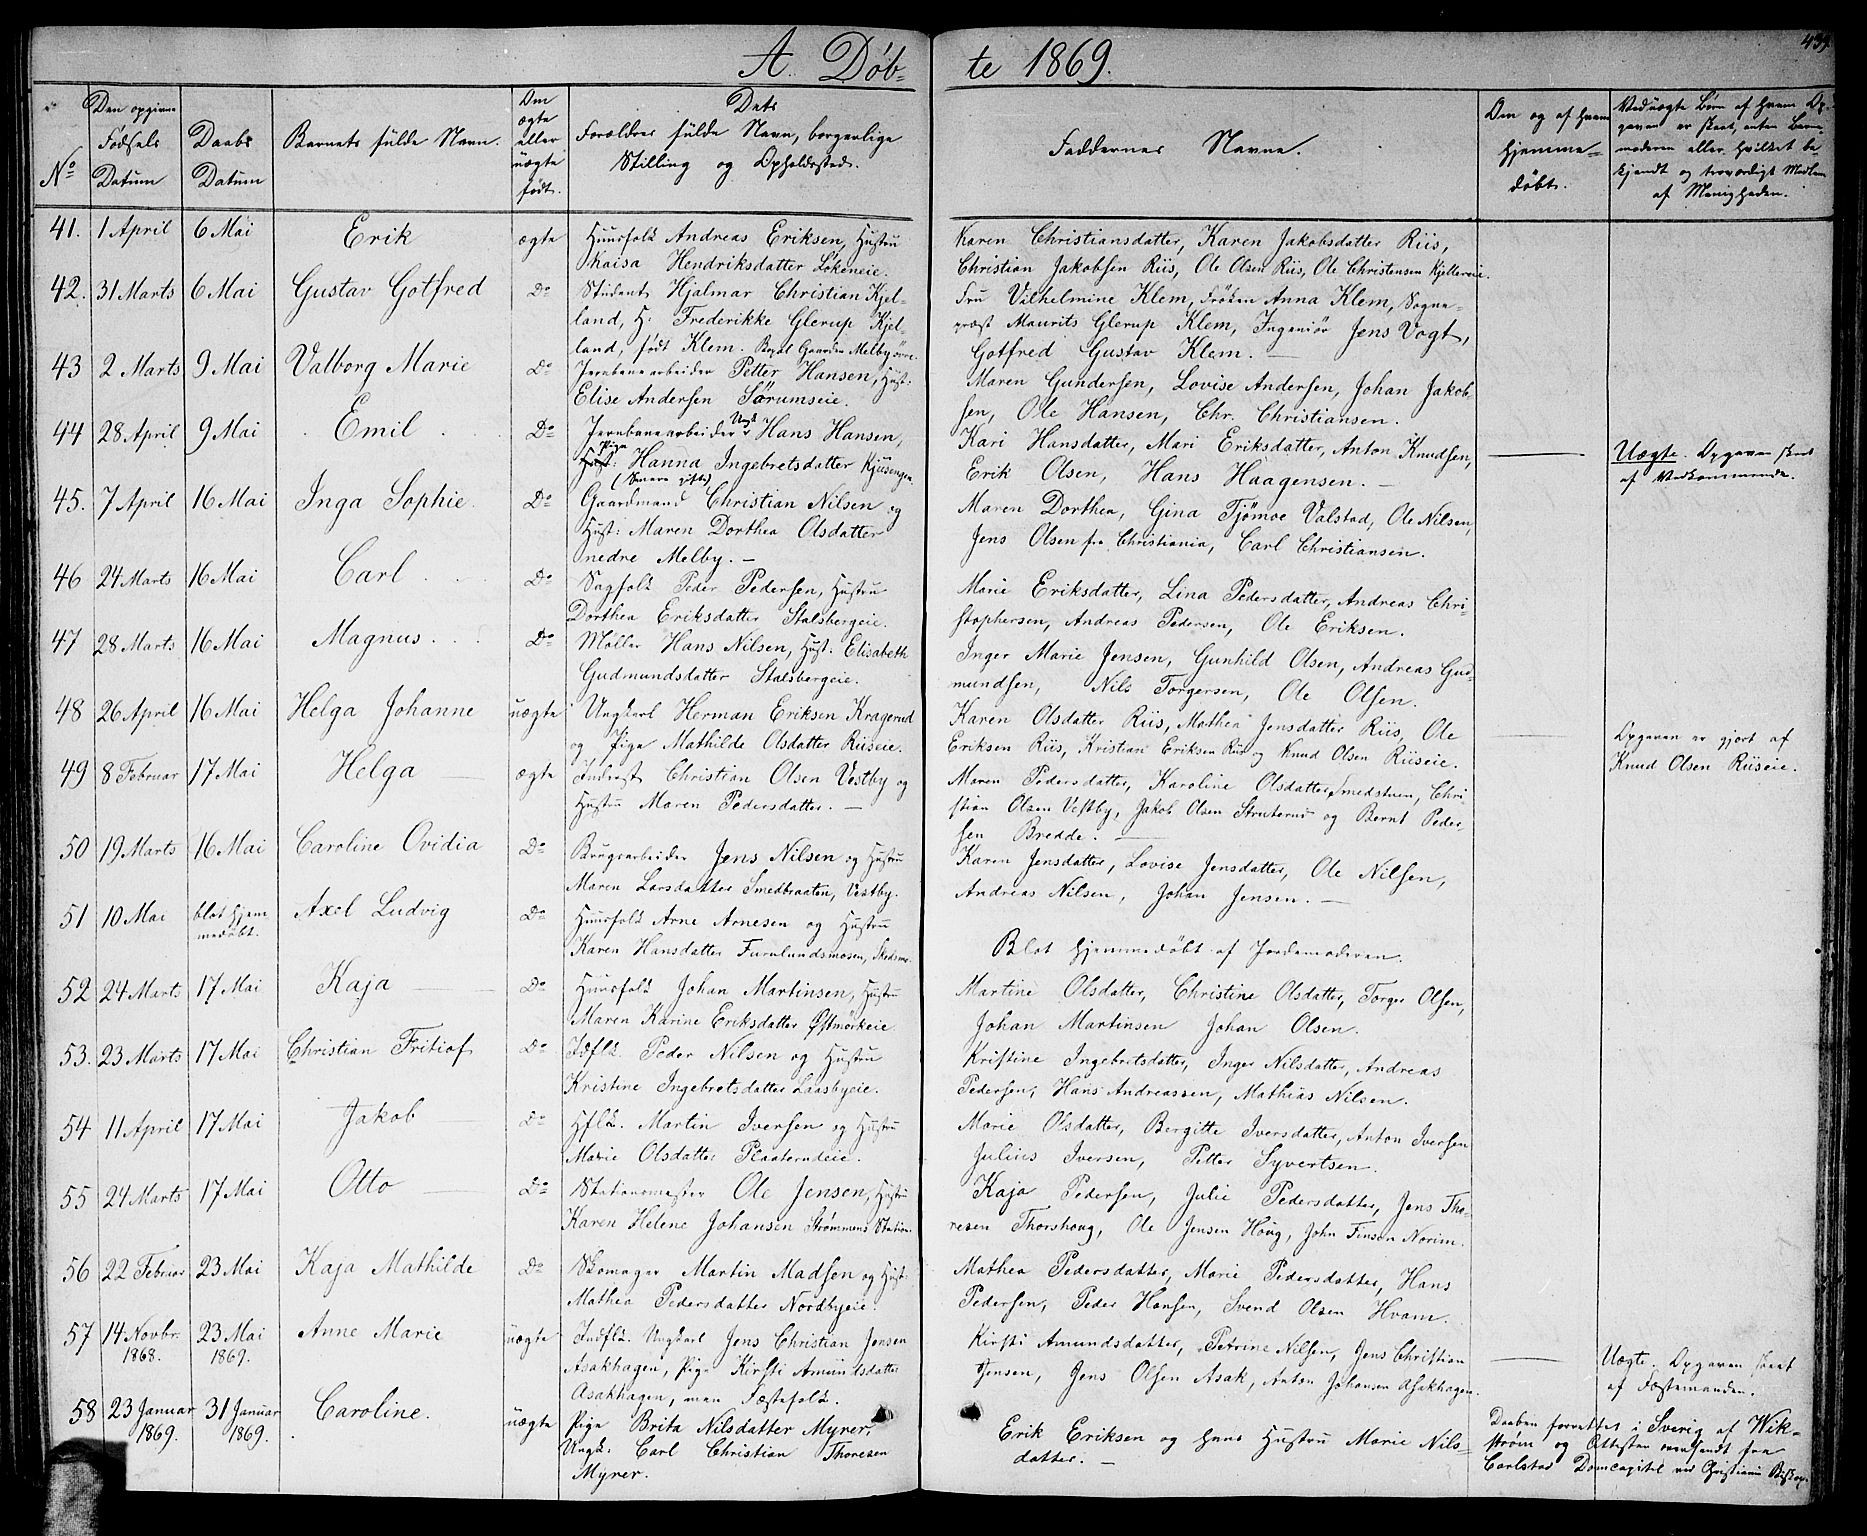 A. Døb-te 1869.
439
No
Den opgivne Fødsels Datum
Daabs Datum
Barnets fulde Navn.
Om ægte eller uægte født.
Dets Forældres fulde Navn, borgerlige Stilling og Opholdssted.
Faddernes Navne.
Om og af hvem hjemme-døbt.
Ved uægte Børn af hvem Op-gaven er skeet, enten Barne-moderen eller hvilket be-kjendt og troværdigt Medlem af Menigheden.
41. 1 April 6 Mai Erik ægte Huusfolk Andreas Eriksen, Hustru
Kaisa Hendriksdatter Løkeneie.
Karen Christiansdatter, Karen Jakobsdatter Riis,
Christian Jakobsen Riis, Ole Olsen Riis, Ole Christensen Kjellereie.
42. 31 Marts 6 Mai Gustav Gotfred Do Student Hjalmar Christian Kjel-
land, H. Frederikke Glerup Kjel-
land, født Klem. Bopæl Gaarden Melby søre.
Fru Vilhelmine Klem, Frøken Anna Klem, Sogne-
præst Maurits Glerup Klem, Ingeniør Jens Vogt,
Gotfred Gustav Klem. —
43 2 Marts 9 Mai Valborg Marie Do Jernbanearbeider Petter Hansen, Hust.
Elise Andersen Sørumseie.
Maren Gundersen, Lovise Andersen, Johan Jakob-
sen, Ole Hansen, Chr. Christiansen.
44 28 April 9 Mai Emil Do Jernbanearbeider Ungk Hans Hansen,
Hust: Pige Hanna Ingebretsdatter Kjusengen
(Senere gifte)
Kari Hansdatter, Mari Eriksdatter, Anton Knudsen,
Erik Olsen, Hans Haagensen. —
Uægte. Opgaven skeet
af Vedkommende.
45. 7 April 16 Mai Inga Sophie. Do Gaardmand Christian Nilsen og
Hust: Maren Dorthea Olsdatter
nedre Melby. —
Maren Dorthea, Gina Tjømoe Valstad, Ole Nilsen,
Jens Olsen fra Christiania, Carl Christiansen.
46 24 Marts 16 Mai Carl Do Sagfolk Peder Pedersen, Hustru
Dorthea Eriksdatter Stalsbergeie.
Marie Eriksdatter, Lina Pedersdatter, Andreas Chri-
stophersen, Andreas Pedersen, Ole Eriksen.
47 28 Marts 16 Mai Magnus Do Møller Hans Nilsen, Hust: Elisabeth
Gudmundsdatter Stalsbergeie.
Inger Marie Jensen, Gunhild Olsen, Andreas Gud-
mundsen, Nils Torgersen, Ole Olsen.
48 26 April 16 Mai Helga Johanne uægte Ungkarl Herman Eriksen Kragerud
og Pige Mathilde Olsdatter Riiseie.
Karen Olsdatter Riis, Mathea Jensdatter Riis, Ole
Eriksen Riis, Kristian Eriksen Riis og Knud Olsen Riiseie.
Opgaven er gjort af
Knud Olsen Riiseie.
49 8 Februar 17 Mai Helga ægte Inderst Christian Olsen Vestby og
Hustru Maren Pedersdatter. —
Maren Pedersdatter, Karoline Olsdatter Smedstuen, Chri-
stian Olsen Vestby, Jakob Olsen Struterud og Bernt Peder-
sen Bredde. —
50 19 Marts 16 Mai Caroline Ovidia Do Brugsarbeider Jens Nilsen og Hustru
Maren Larsdatter Smedbraaten, Vestby.
Karen Jensdatter, Lovise Jensdatter, Ole Nilsen,
Andreas Nilsen, Johan Jensen. —
51 10 Mai blot hjem-
medøbt. Axel Ludvig Do Huusfolk Arne Arnesen og Hustru
Karen Hansdatter Furulundsmosen, Skedsmo.
Blot hjemmedøbt af Jordemoderen.
52 24 Marts 17 Mai Kaja Do Huusfolk Johan Martinsen, Hustru
Maren Karine Eriksdatter Østmørkeie
Martine Olsdatter, Christine Olsdatter, Torger Olsen,
Johan Martinsen Johan Olsen.
53. 23 Marts 17 Mai Christian Fritiof Do Idflk. Peder Nilsen og Hustru
Kristine Ingebretsdatter Laasbyeie.
Kristine Ingebretsdatter, Inger Nilsdatter, Andreas
Pedersen, Hans Andreassen, Mathias Nilsen.
54 11 April 17 Mai Jakob Do Hflk. Martin Iversen og Hustru
Marie Olsdatter Plaaterudeie.
Marie Olsdatter, Bergitte Iversdatter, Anton Iversen
Julius Iversen, Petter Syvertsen.
55 24 Marts 17 Mai Otto Do Stationsmester Ole Jensen, Hustru
Karen Helene Johansen Strømmens Station.
Kaja Pedersen, Julie Pedersdatter, Jens Tho-
resen Thorshoug, Ole Jensen Houg, John Finsen Norim.
56 22 Februar 23 Mai Kaja Mathilde Do Skomager Martin Madsen og Hust:
Mathea Pedersdatter Nordbyeie.
Mathea Pedersdatter, Marie Pedersdatter, Hans
Pedersen, Peder Hansen, Svend Olsen Hvam.
57 14 Novbr. 1868. 23 Mai 1869. Anne Marie uægte Indflk. Ungkarl Jens Christian Jensen
Asakhagen, Pige Kirsti Amundsdatter
Asakhagen, men Fæstefolk.
Kirsti Amundsdatter, Petrine Nilsen, Jens Christian
Jensen, Jens Olsen Asak, Anton Johansen Asakhagen.
Uægte. Opgaven skeet
af Fæstemanden.
58 23 Januar 1869. 31 Januar 1869. Caroline. uægte Pige Brita Nilsdatter Myrer,
Ungk: Carl Christian Thoresen
Myrer.
Erik Eriksen og hans Hustru Marie Nils-
datter. —
Daaben forrettet i Sverig af Wik-
strøm og Attesten oversendt fra
Carlstad Domcapitel ved Christiania Biskop.